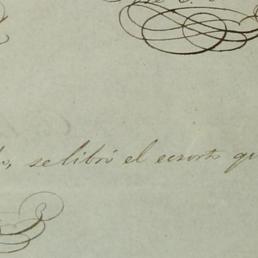 se libró el exorto qu